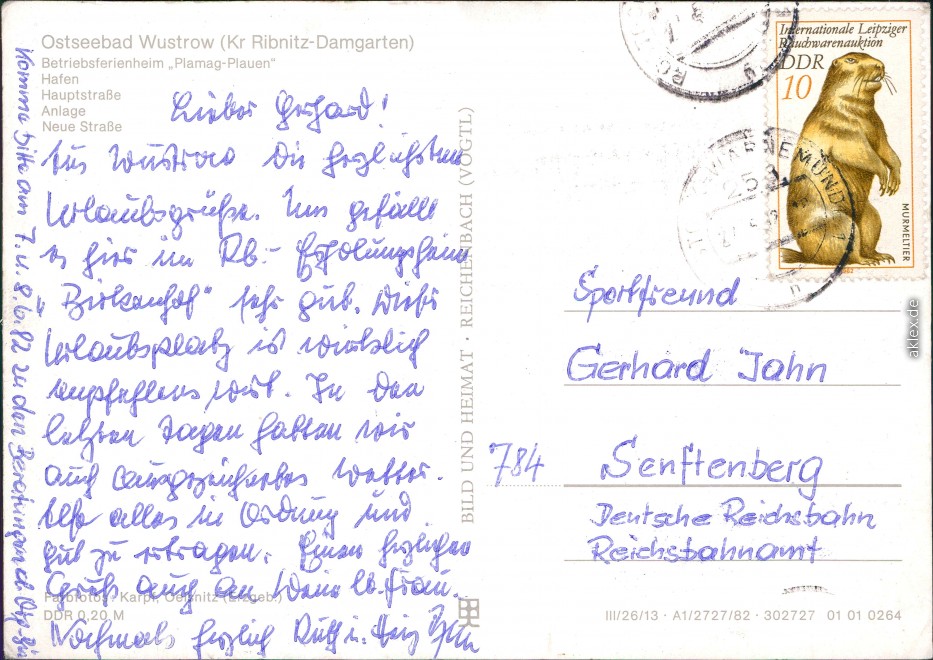 Ostseebad Wustrow (Kr Ribnitz-Damgarten)
Betriebsferienheim „Plamag-Plauen"
Hafen
Hauptstraße
Anlage
Neue Straße
Lieber Gerhard!
Aus Wustrow die herzlichsten
Urlaubsgrüße. Uns gefällt
es hier im Rb.-Erholungsheim
„Birkenhof" sehr gut. Dieser
Urlaubsplatz ist wirklich
empfehlenswert. In den
letzten Tagen hatten wir
auch ausgezeichnetes Wetter.
Also alles in Ordnung und
gut zu ertragen. Einen herzlichen
Gruß auch an Deine lb. Frau.
Nochmals herzlich Ruth u. Heinz
Komme bitte am 7. u. 8.6.82 zu den
Farbfotos: Karpf, Oelsnitz (Erzgeb.)
DDR 0,20 M
BILD UND HEIMAT · REICHENBACH (VOGTL)
Internationale Leipziger
Rauchwarenauktion
DDR
10
MURMELTIER
1982
WARNEMÜNDE 1
253
Sportfreund
Gerhard Jahn
784 Senftenberg
Deutsche Reichsbahn
Reichsbahnamt
III/26/13 · A1/2727/82 · 302727 01 01 0264
aklex.de